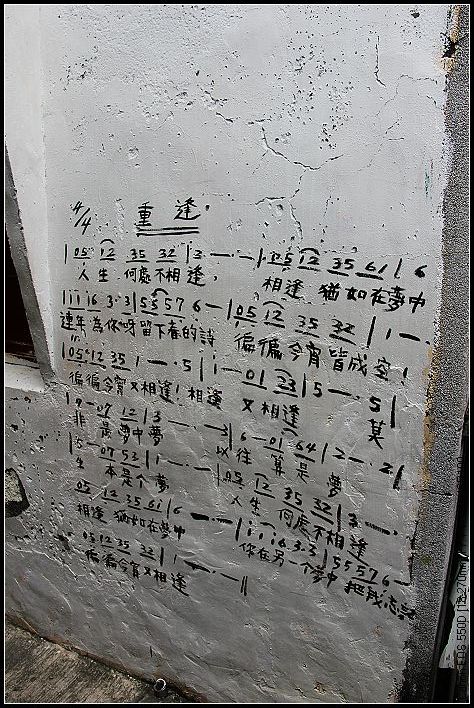 4/4 重逢
|05 12 35 32|3 - - -|05 12 35 61|6
人生何處不相逢, 相逢猶如在夢中
|1116 3·3|5557 6 -|05 12 35 32|1 - -
連年為你呀留下春的詩 偏偏今宵皆成空!
|05 12 35 1 - - 5|1 - 01 23|5 - - 5|
偏偏今宵又相逢!相逢 又相逢 莫
|7 - 07 12|3 - - - 3|6 - 01 64|2 - - 2|
非是夢中夢 以往算是夢
|5 - 07 53|1 - - -|05 12 35 32|3 - - -
生本是个夢 人生何處不相逢
05 12 35 61|6 - - -|1116 3·3|5557 6 -
相逢猶如在夢中 你在另一个夢中把我忘記
05 12 35 32|1 - - -||
偏偏今宵又相逢